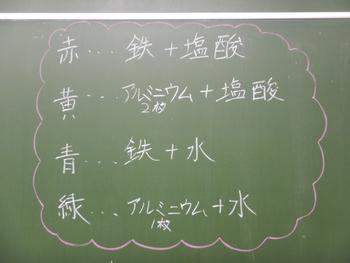 赤…鉄+塩酸
黄…アルミニウム+塩酸
2枚
青…鉄+水
緑…アルミニウム+水
1枚